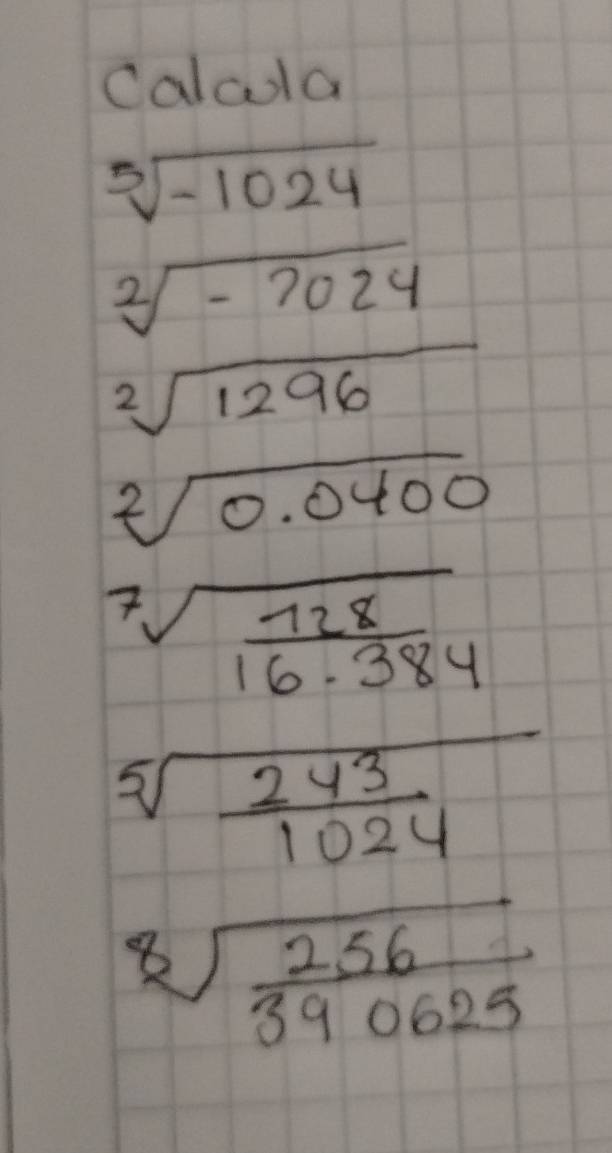 Calcula
⁵√-1024
²√-7024
²√1296
²√0.0400
⁷√128/16.384
⁵√243/1024
⁸√256/390625